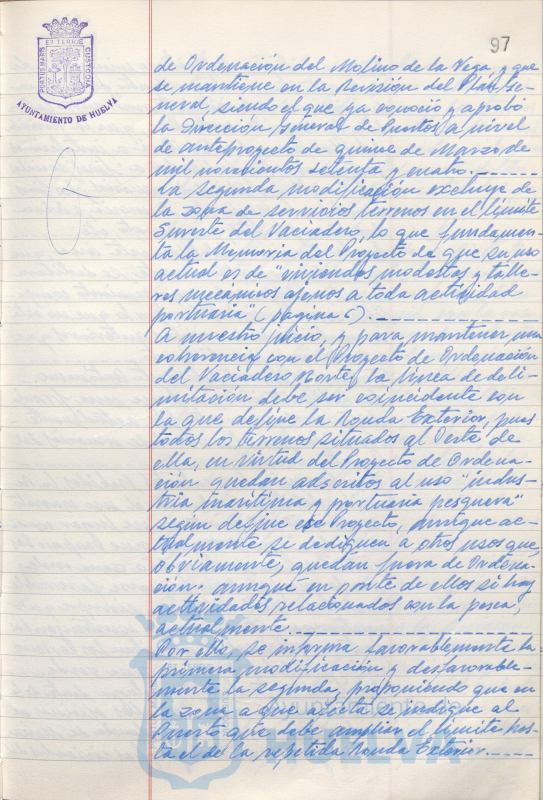 97
PORTUS MARIS ET TERRAE CUSTODIA
AYUNTAMIENTO DE HUELVA
de Ordenación del Molino de la Vega, y que
se mantiene en la Revisión del Plan Ge-
neral, siendo el que ya conoció y aprobó
la Dirección General de Puertos, a nivel
de anteproyecto de quince de Marzo, de
mil novecientos setenta y cuatro.------
La segunda modificación excluye de
la zona de servicios terrenos en el límite
Sureste del Vaciadero, lo que fundamen-
ta la Memoria del Proyecto de que su uso
actual es de "viviendas modestas y talle-
res mecánicos ajenos a toda actividad
portuaria" (página 6).------
A nuestro juicio, y para mantener una
coherencia con el Proyecto de Ordenación
del Vaciadero Norte, la línea de deli-
mitación debe ser coincidente con
la que define la Ronda Exterior, pues
todos los terrenos situados al Oeste de
ella, en virtud del Proyecto de Ordena-
ción quedan adscritos al uso "indus-
tria marítima y portuaria pesquera"
según define ese Proyecto, aunque ac-
tualmente se dediquen a otros usos que,
obviamente, quedan fuera de Ordena-
ción. aunque en parte de ellos si hay
actividades relacionados con la pesca,
actualmente.------
Por ello, se informa favorablemente la
primera modificación y desfavorable-
mente la segunda, proponiendo que en
la zona a que afecta se indique al
Puerto que debe ampliar el límite has-
ta el de la repetida Ronda Exterior.-----
HUELVA